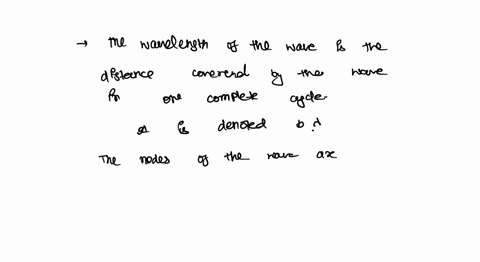 → The wavelength of the wave is the
distance coverend by the wave
in one complete cycle.
It is denoted b λ
The nodes of the wave ax